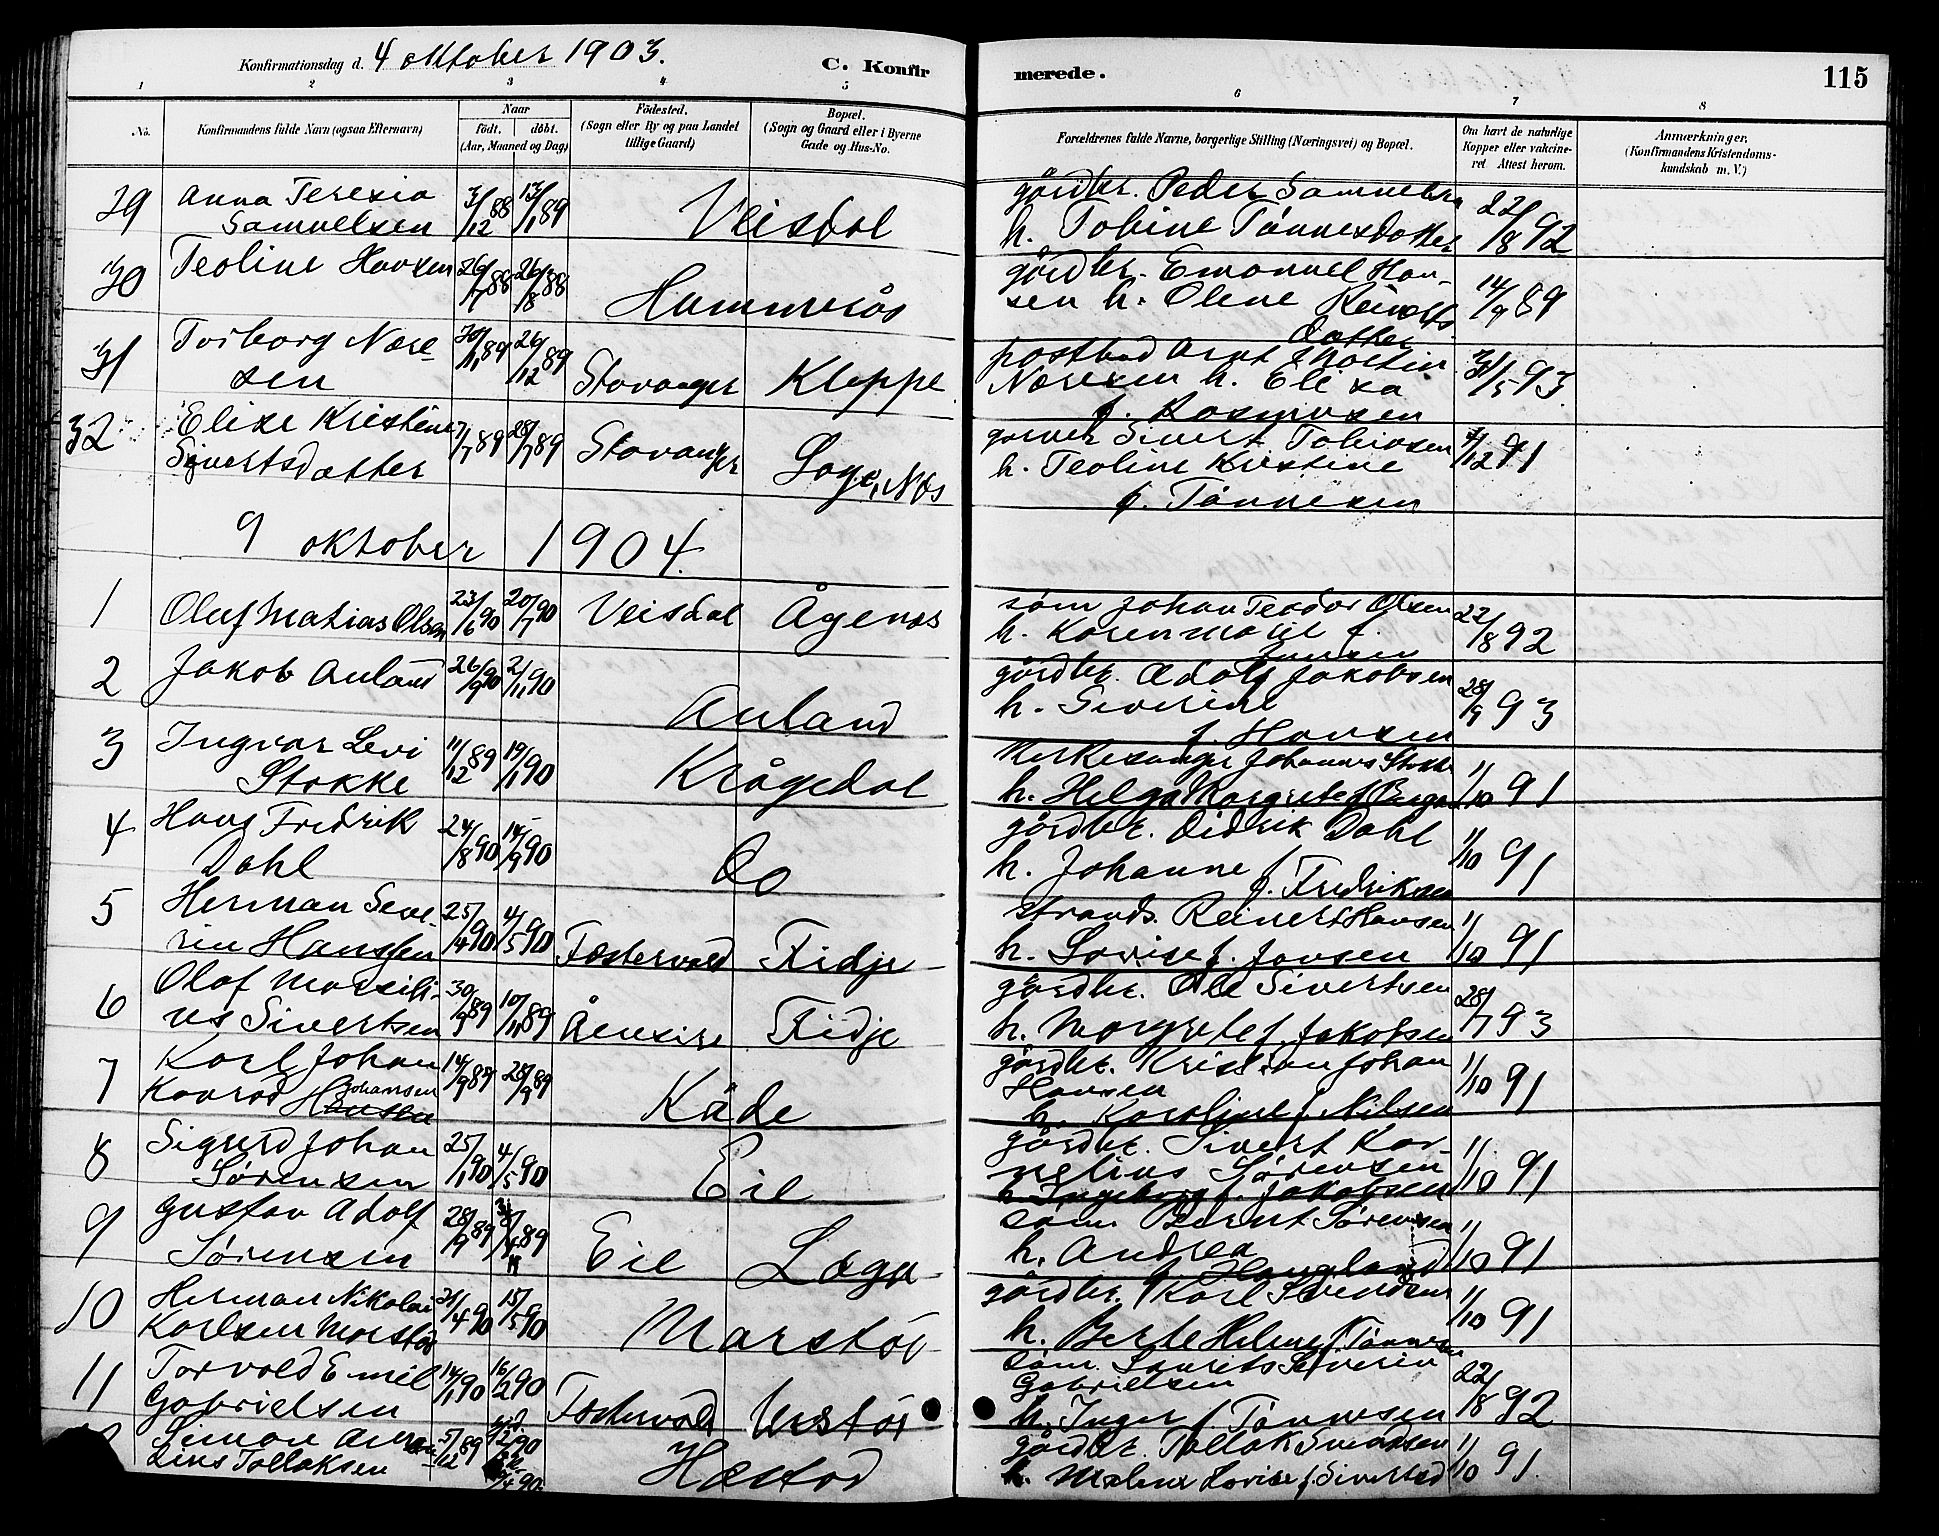 Konfirmationsdag d. 4 oktober 1903.
C. Konfir
merede.
115
1 2 3 4 5 6 7 8
No.
Konfirmandens fulde Navn (ogsaa Efternavn)
Naar
födt. döbt.
(Aar, Maaned og Dag)
Födested.
(Sogn eller By og paa Landet
tillige Gaard)
Bopæl.
(Sogn og Gaard eller i Byerne
Gade og Hus-No.
Forældrenes fulde Navne, borgerlige Stilling (Næringsvei) og Bopæl.
Om havt de naturlige
Kopper eller vakcine-
ret Attest herom.
Anmærkninger,
(Konfirmandens Kristendoms-
kundskab m. V.)
29 Anna Teresia
Samuelsen
3/12 88 13/1 89 Veisdal
gårdbr. Peder Samuelsen
h. Tobine Tønnesdatter
22/8 92
30 Teoline Hansen
26/7 88 26/8 88 Hummerås
gårdbr. Emanuel Han-
sen h. Olene Reinerts
datter
14/9 89
31 Torborg Nære-
sen
30/11 89 26/12 89 Stavanger Kleppe
postbud Arnt Martin
Næresen h. Elisa
f. Rasmusen
31/5 93
32 Elise Kristine
Sivertsdatter
7/7 89 28/7 89 Stavanger Loge, Næs
garver Sivert Tobiasen
h. Teoline Kristine
f. Tønnesen
4/12 91
9 oktober 1904.
1 Oluf Matias Olsen
23/6 90 20/7 90 Veisdal Ågenes
søm Johan Teodor Olsen
h. Karen Marie f.
Jansen
22/8 92
2 Jakob Anland
26/9 90 2/11 90 Anland
gårdbr. Adolf Jakobsen
h. Siverine
f. Hansen
28/9 93
3 Ingvar Levi
Stokke
11/12 89 19/1 90 Krågedal
Kirkesanger Johannes Stokke
h. Helga Margrete f.
1/10 91
4 Hans Fredrik
Dahl
24/8 90 14/9 90 do
gårdbr. Didrik Dahl
h. Johanne
f. Fredriksen
1/10 91
5 Herman Seve-
rin Hansen
25/4 90 4/5 90 Festervold Fidje
strands. Reinert Hansen
h. Lovise f. Jansen
1/10 91
6 Olaf Marsili-
us Sivertsen
30/9 89 10/11 89 Åensire Fidje
gårdbr. Ole Sivertsen
h. Margrete f. Jakobsen
28/7 93
7 Karl Johan
Konrad Johansen
Hansen
14/9 89 28/9 89 Kåde
gårdbr. Kristian Johan
Hansen
h. Karoline f. Nilsen
1/10 91
8 Sigurd Johan
Sørensen
25/1 90 4/5 90 Eie
gårdbr. Sivert Kor-
nelius Sørensen
h. Ingeborg f. Jakobsen
1/10 91
9 Gustav Adolf
Sørensen
28/9 89 89 Eie Loga
søm. Bernt Sørensen
h. Andrea
f. Haugland
1/10 91
10 Herman Nikolai
Karlsen Marstøl
21/4 90 15/5 90 Marstøl
gårdbr. Karl Svendsen
h. Berte Helene f. Tønnesen
1/10 91
11 Torvald Emil
Gabrielsen
14/1 90 16/2 90 Festervold Urstøl
søm. Laurits Severin
Gabrielsen
h. Inger f. Tønnesen
22/8 92
Simon
lius Tollaksen
5/12 89 90 Hæstad
gårdbr. Tollak Svendsen
h. Malene Lovise f. Sivertsd
1/10 91.